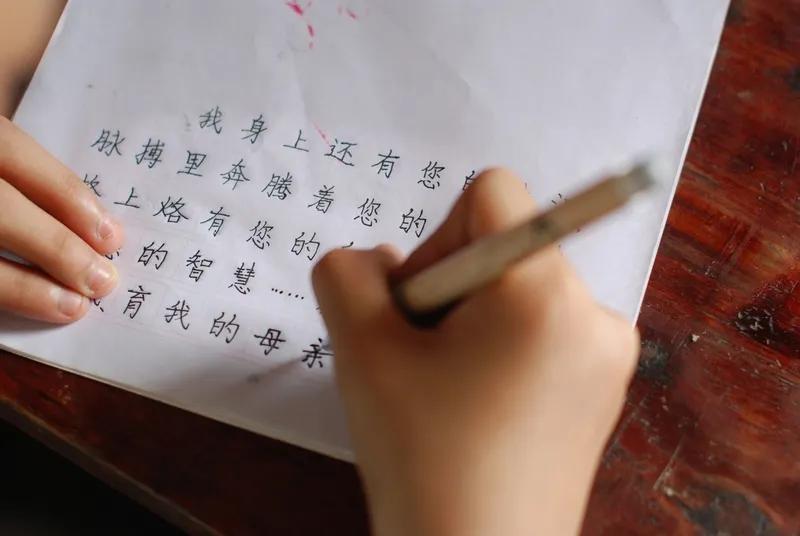 我身上还有您
脉搏里奔腾着您的
上烙有您的
的智慧……
育我的母亲